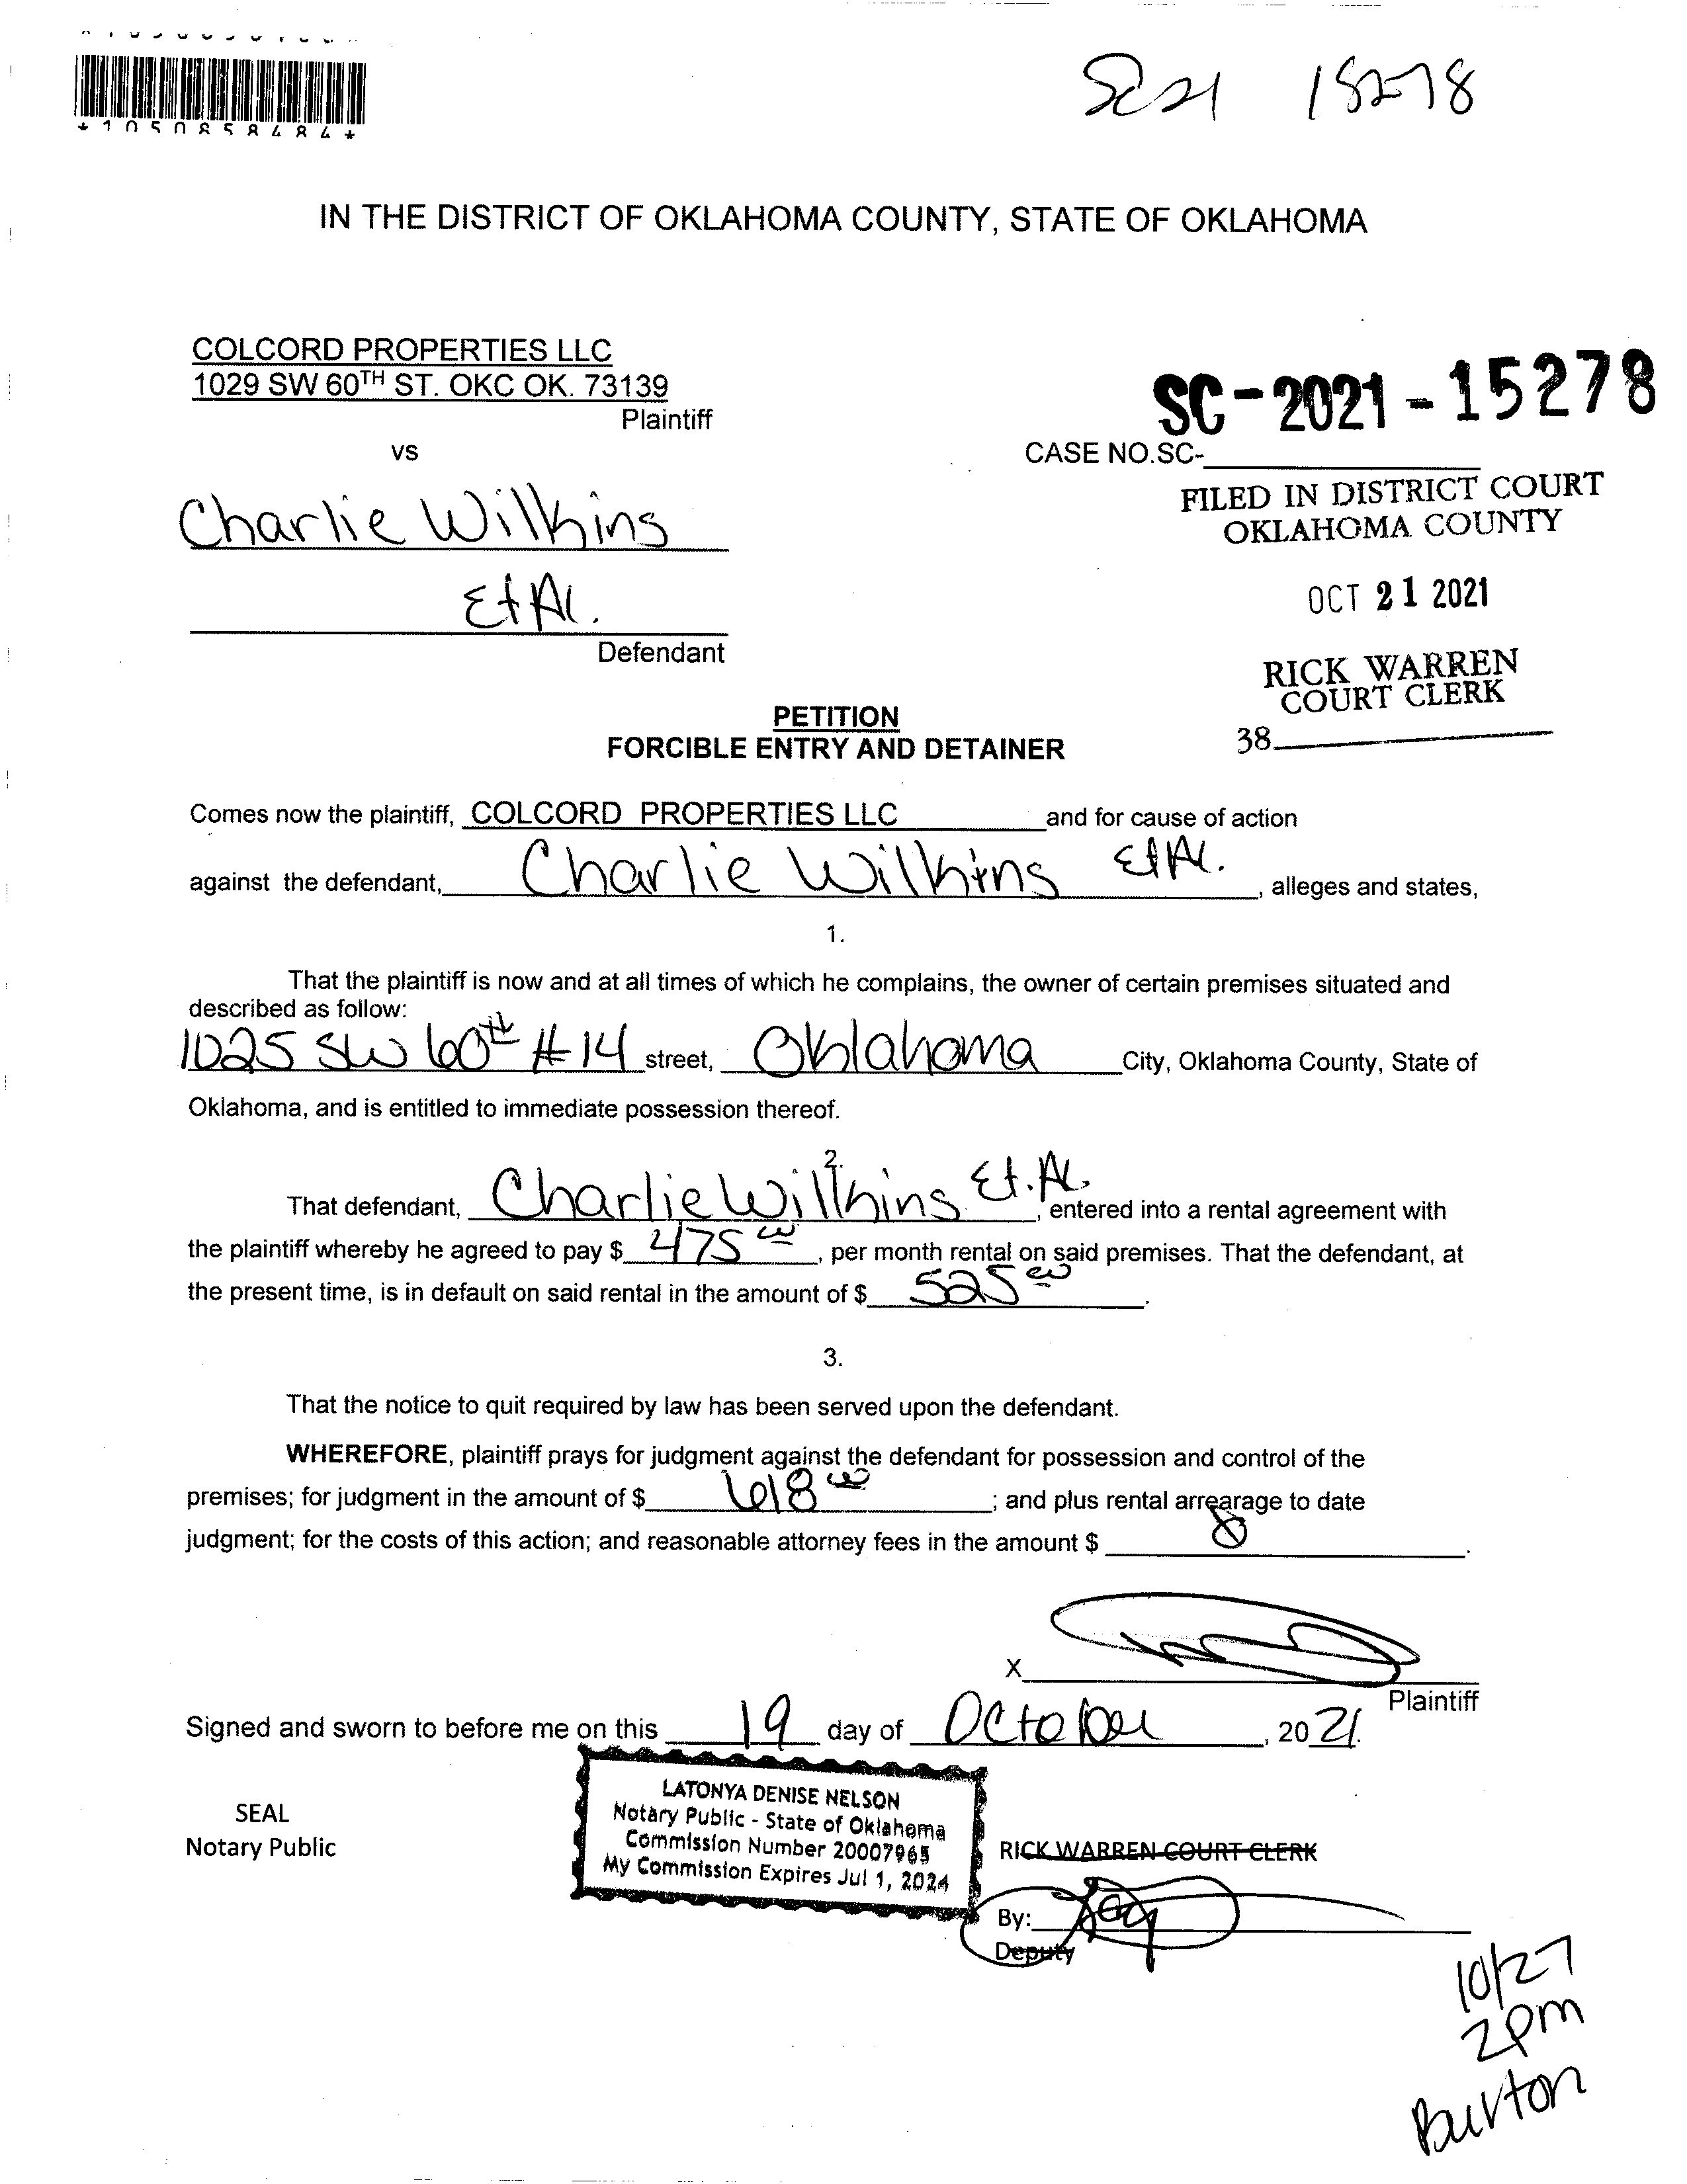 *1050858484*
SC21 15278
IN THE DISTRICT OF OKLAHOMA COUNTY, STATE OF OKLAHOMA
COLCORD PROPERTIES LLC
1029 SW 60TH ST. OKC OK. 73139
Plaintiff
SC-2021-15278
vs
CASE NO.SC-
FILED IN DISTRICT COURT
OKLAHOMA COUNTY
Charlie Wilkins
Et Al.
OCT 21 2021
Defendant
RICK WARREN
COURT CLERK
38
PETITION
FORCIBLE ENTRY AND DETAINER
Comes now the plaintiff, COLCORD PROPERTIES LLC and for cause of action
against the defendant, Charlie Wilkins Et Al. , alleges and states,
1.
That the plaintiff is now and at all times of which he complains, the owner of certain premises situated and
described as follow:
1025 SW 60th #14 street, Oklahoma City, Oklahoma County, State of
Oklahoma, and is entitled to immediate possession thereof.
2.
That defendant, Charlie Wilkins Et. Al. , entered into a rental agreement with
the plaintiff whereby he agreed to pay $ 475 00 , per month rental on said premises. That the defendant, at
the present time, is in default on said rental in the amount of $ 525 00 .
3.
That the notice to quit required by law has been served upon the defendant.
WHEREFORE, plaintiff prays for judgment against the defendant for possession and control of the
premises; for judgment in the amount of $ 618 00 ; and plus rental arrearage to date
judgment; for the costs of this action; and reasonable attorney fees in the amount $ 0 .
X
Plaintiff
Signed and sworn to before me on this 19 day of October , 20 21.
LATONYA DENISE NELSON
Notary Public - State of Oklahoma
Commission Number 20007965
My Commission Expires Jul 1, 2024
SEAL
Notary Public
RICK WARREN COURT CLERK
By:
Deputy
10/27
2pm
Burton